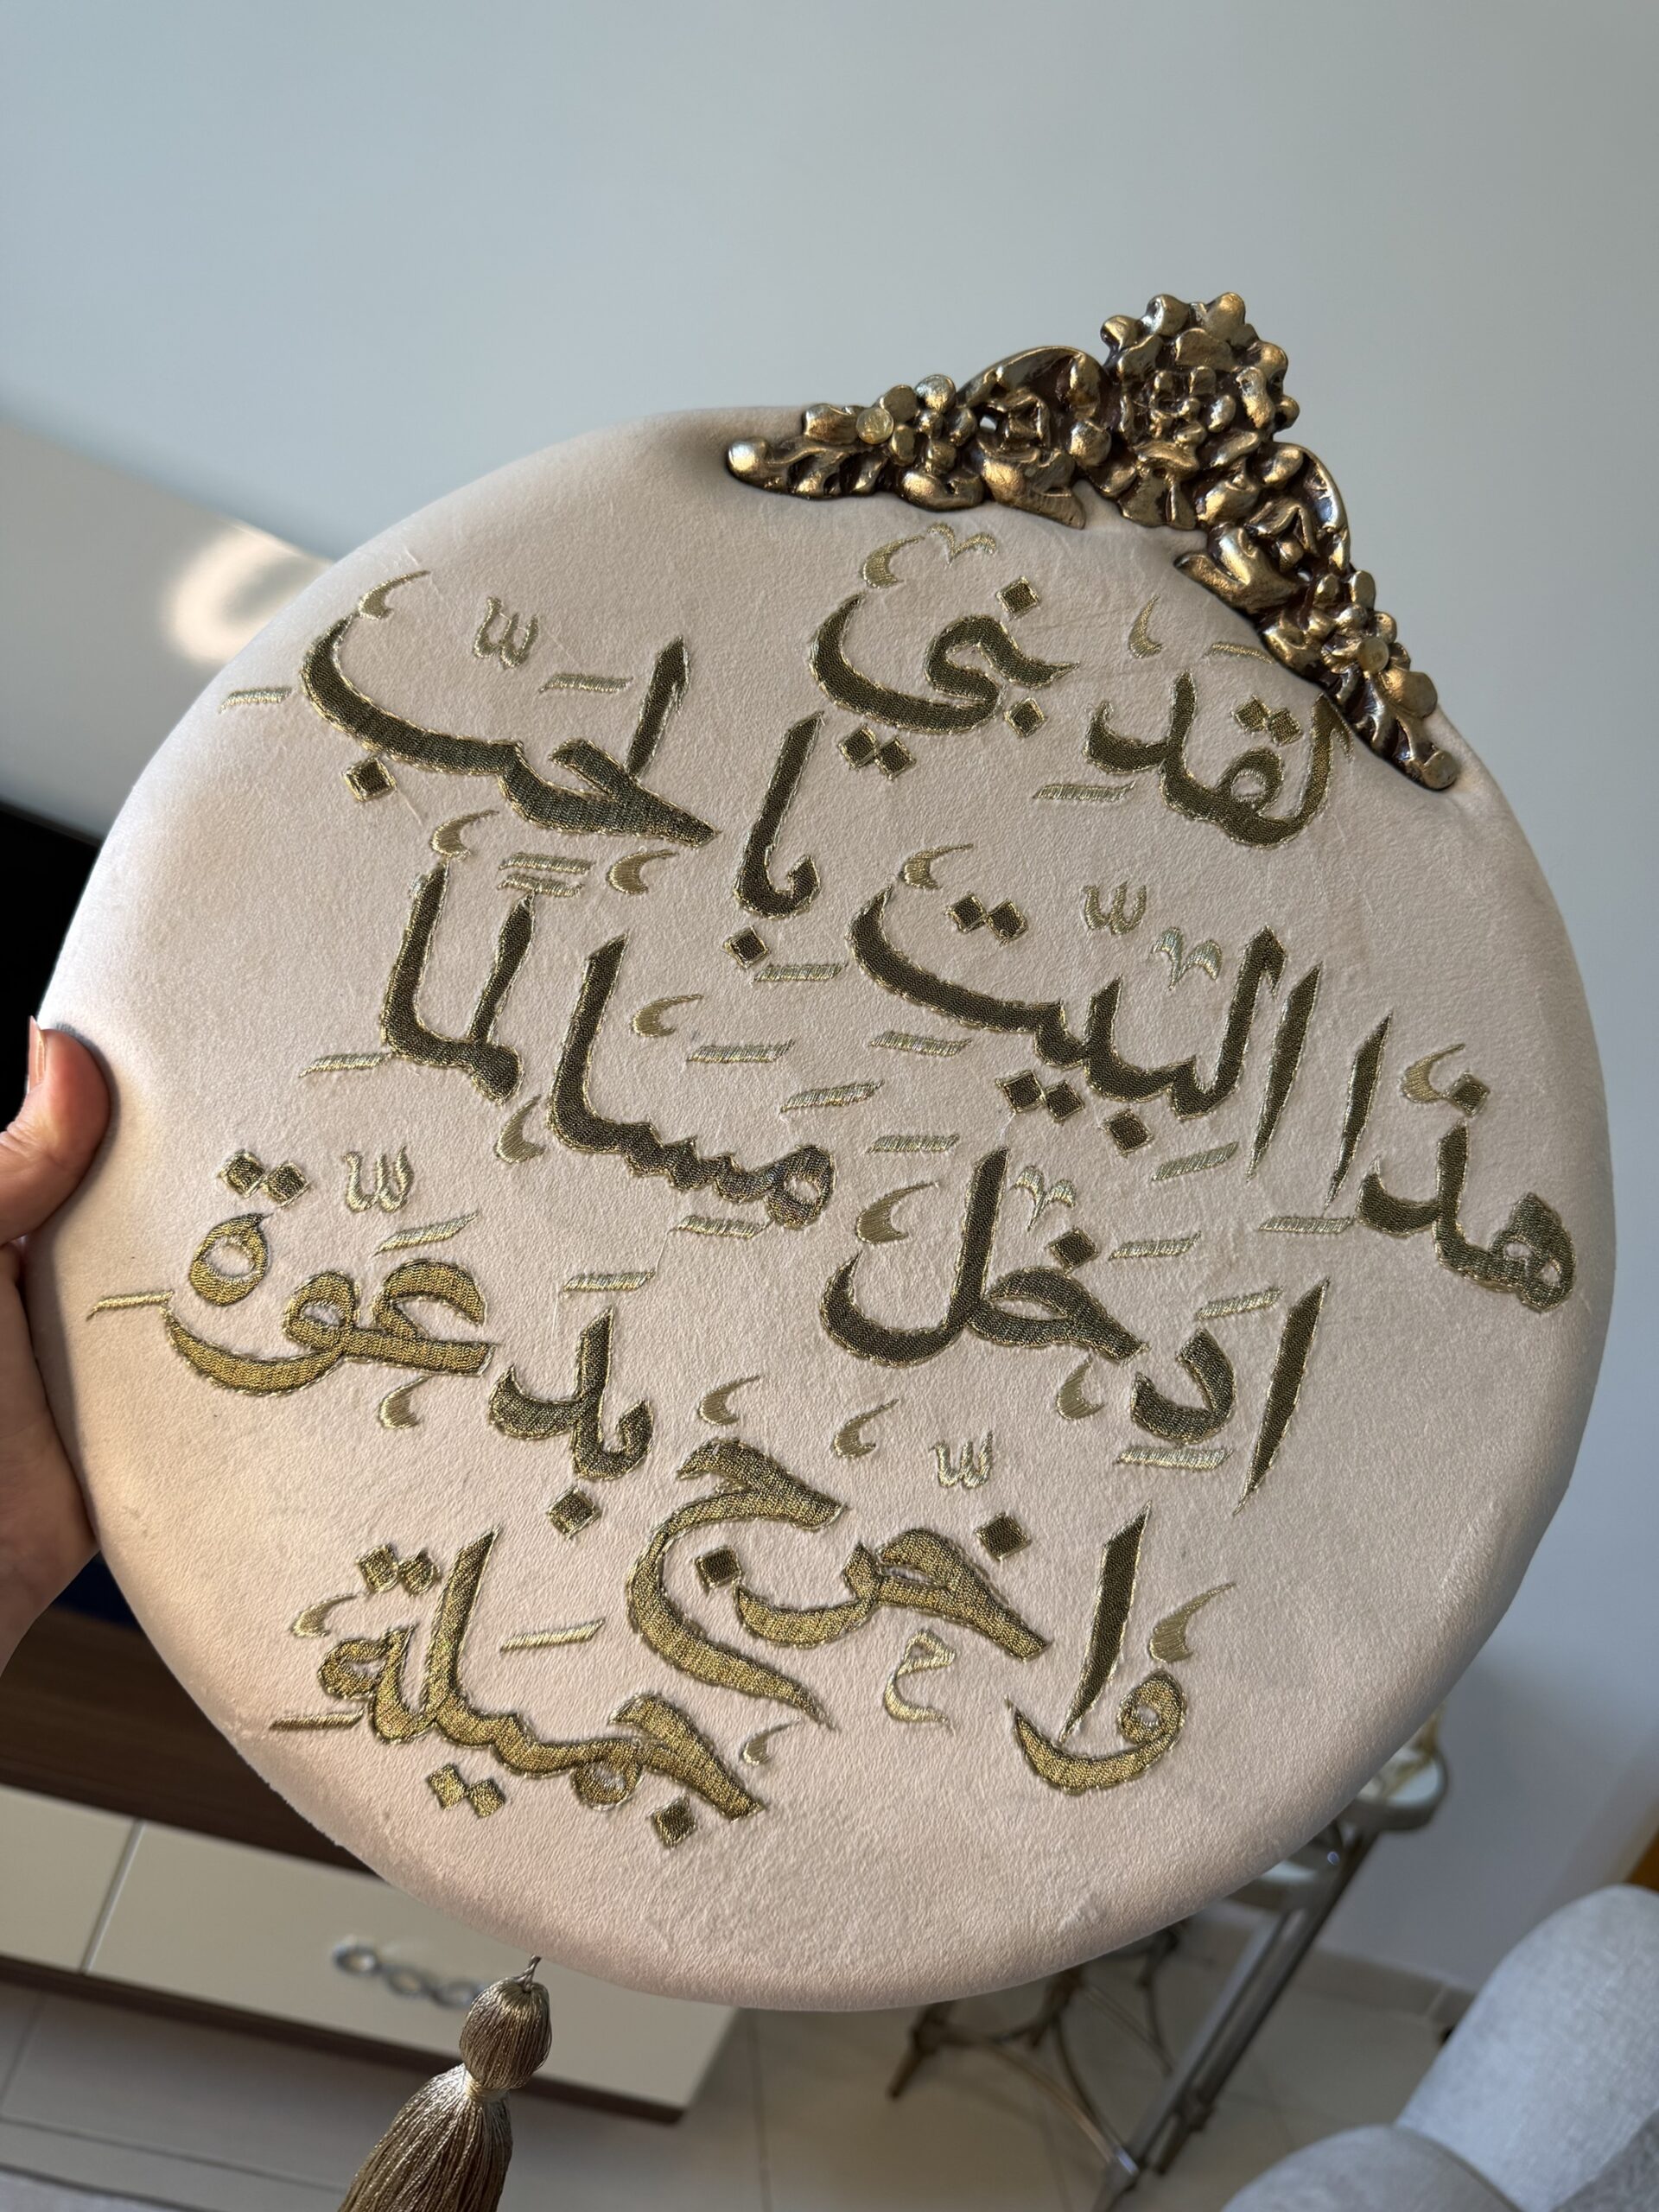 لقد بني
هذا البيت بالحب
ادخل مسالماً
واخرج بدعوة
جميلة